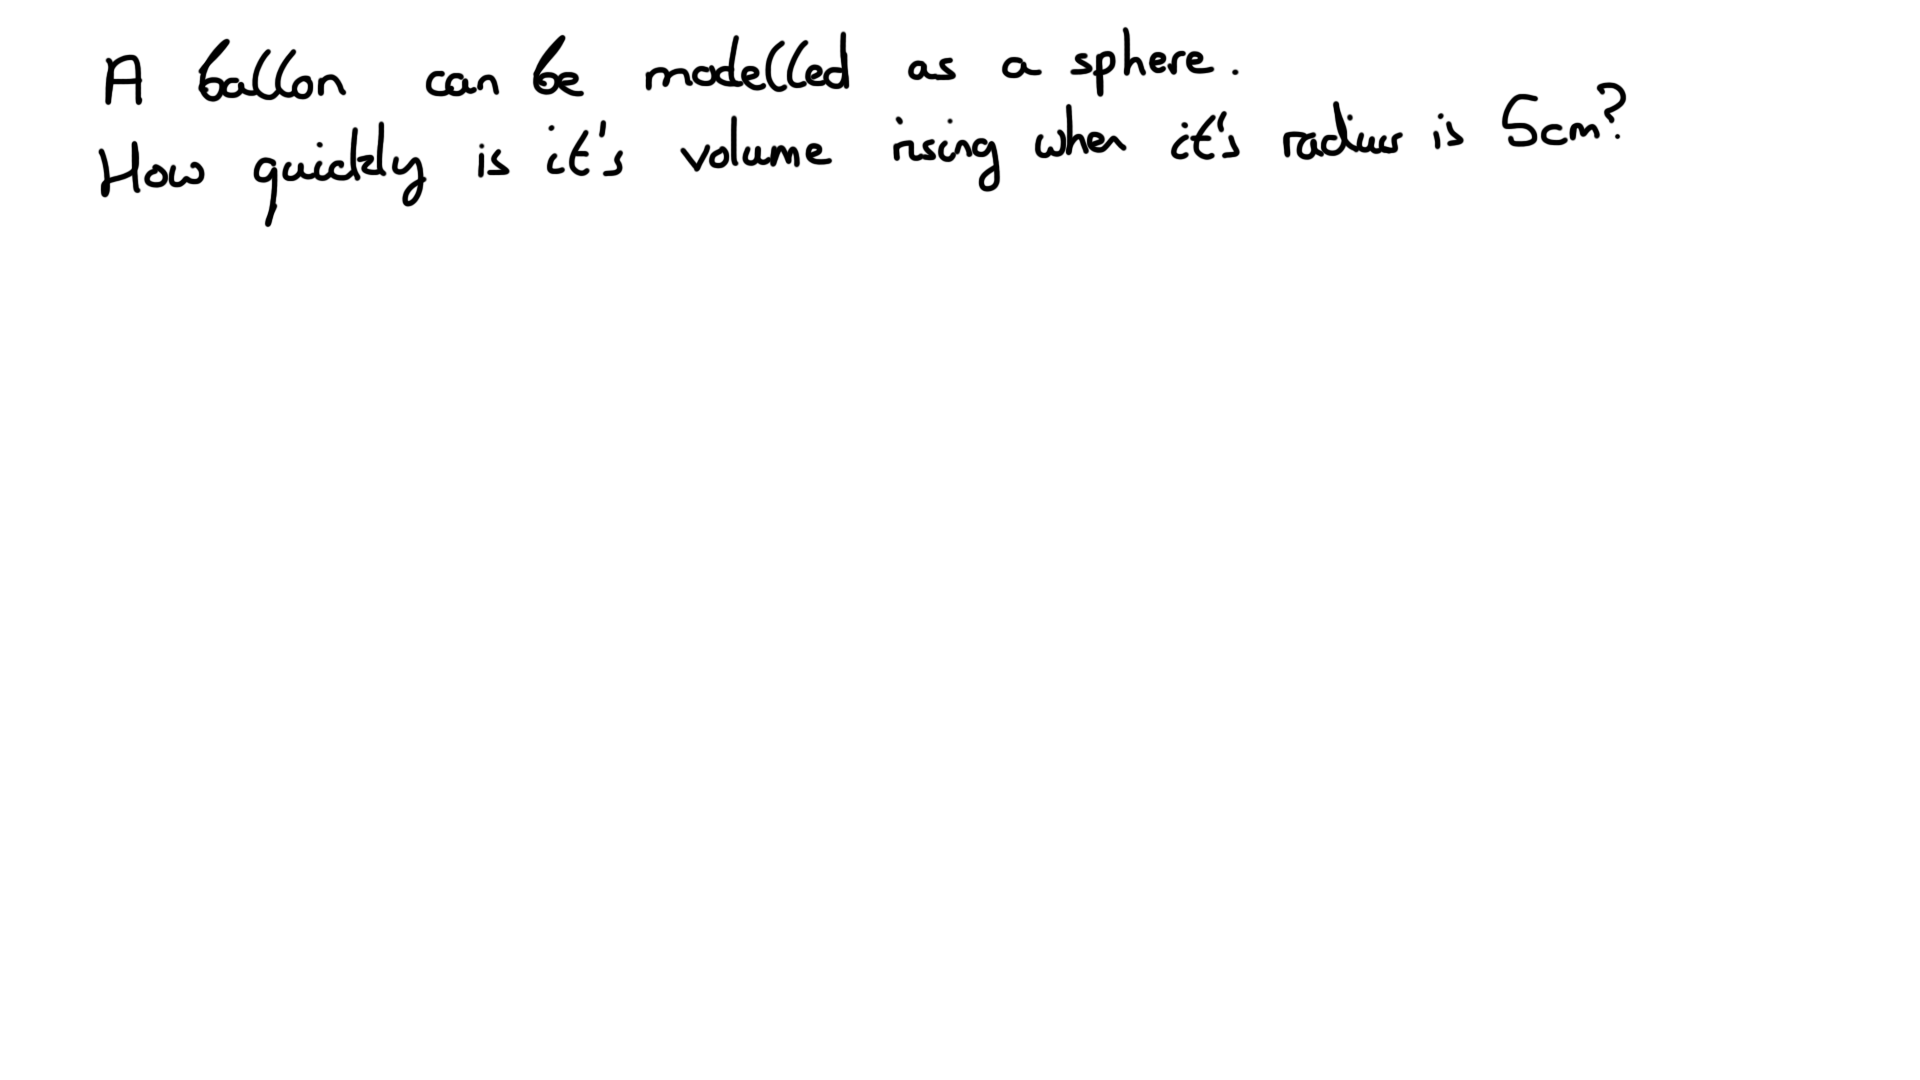 A ballon can be modelled as a sphere.
How quickly is it's volume rising when it's radius is 5cm?